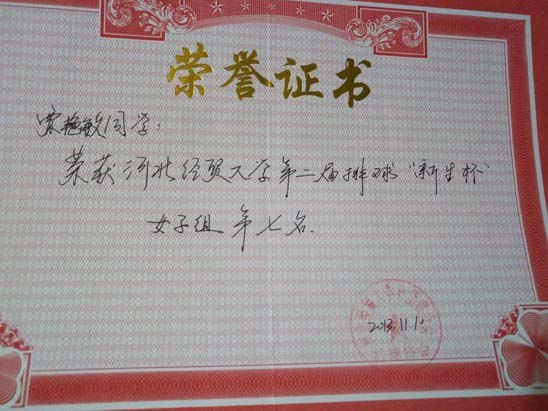 荣誉证书
艳敏同学:
荣获河北经贸大学第二届排球"新生杯"
女子组第七名.
2013.11.10